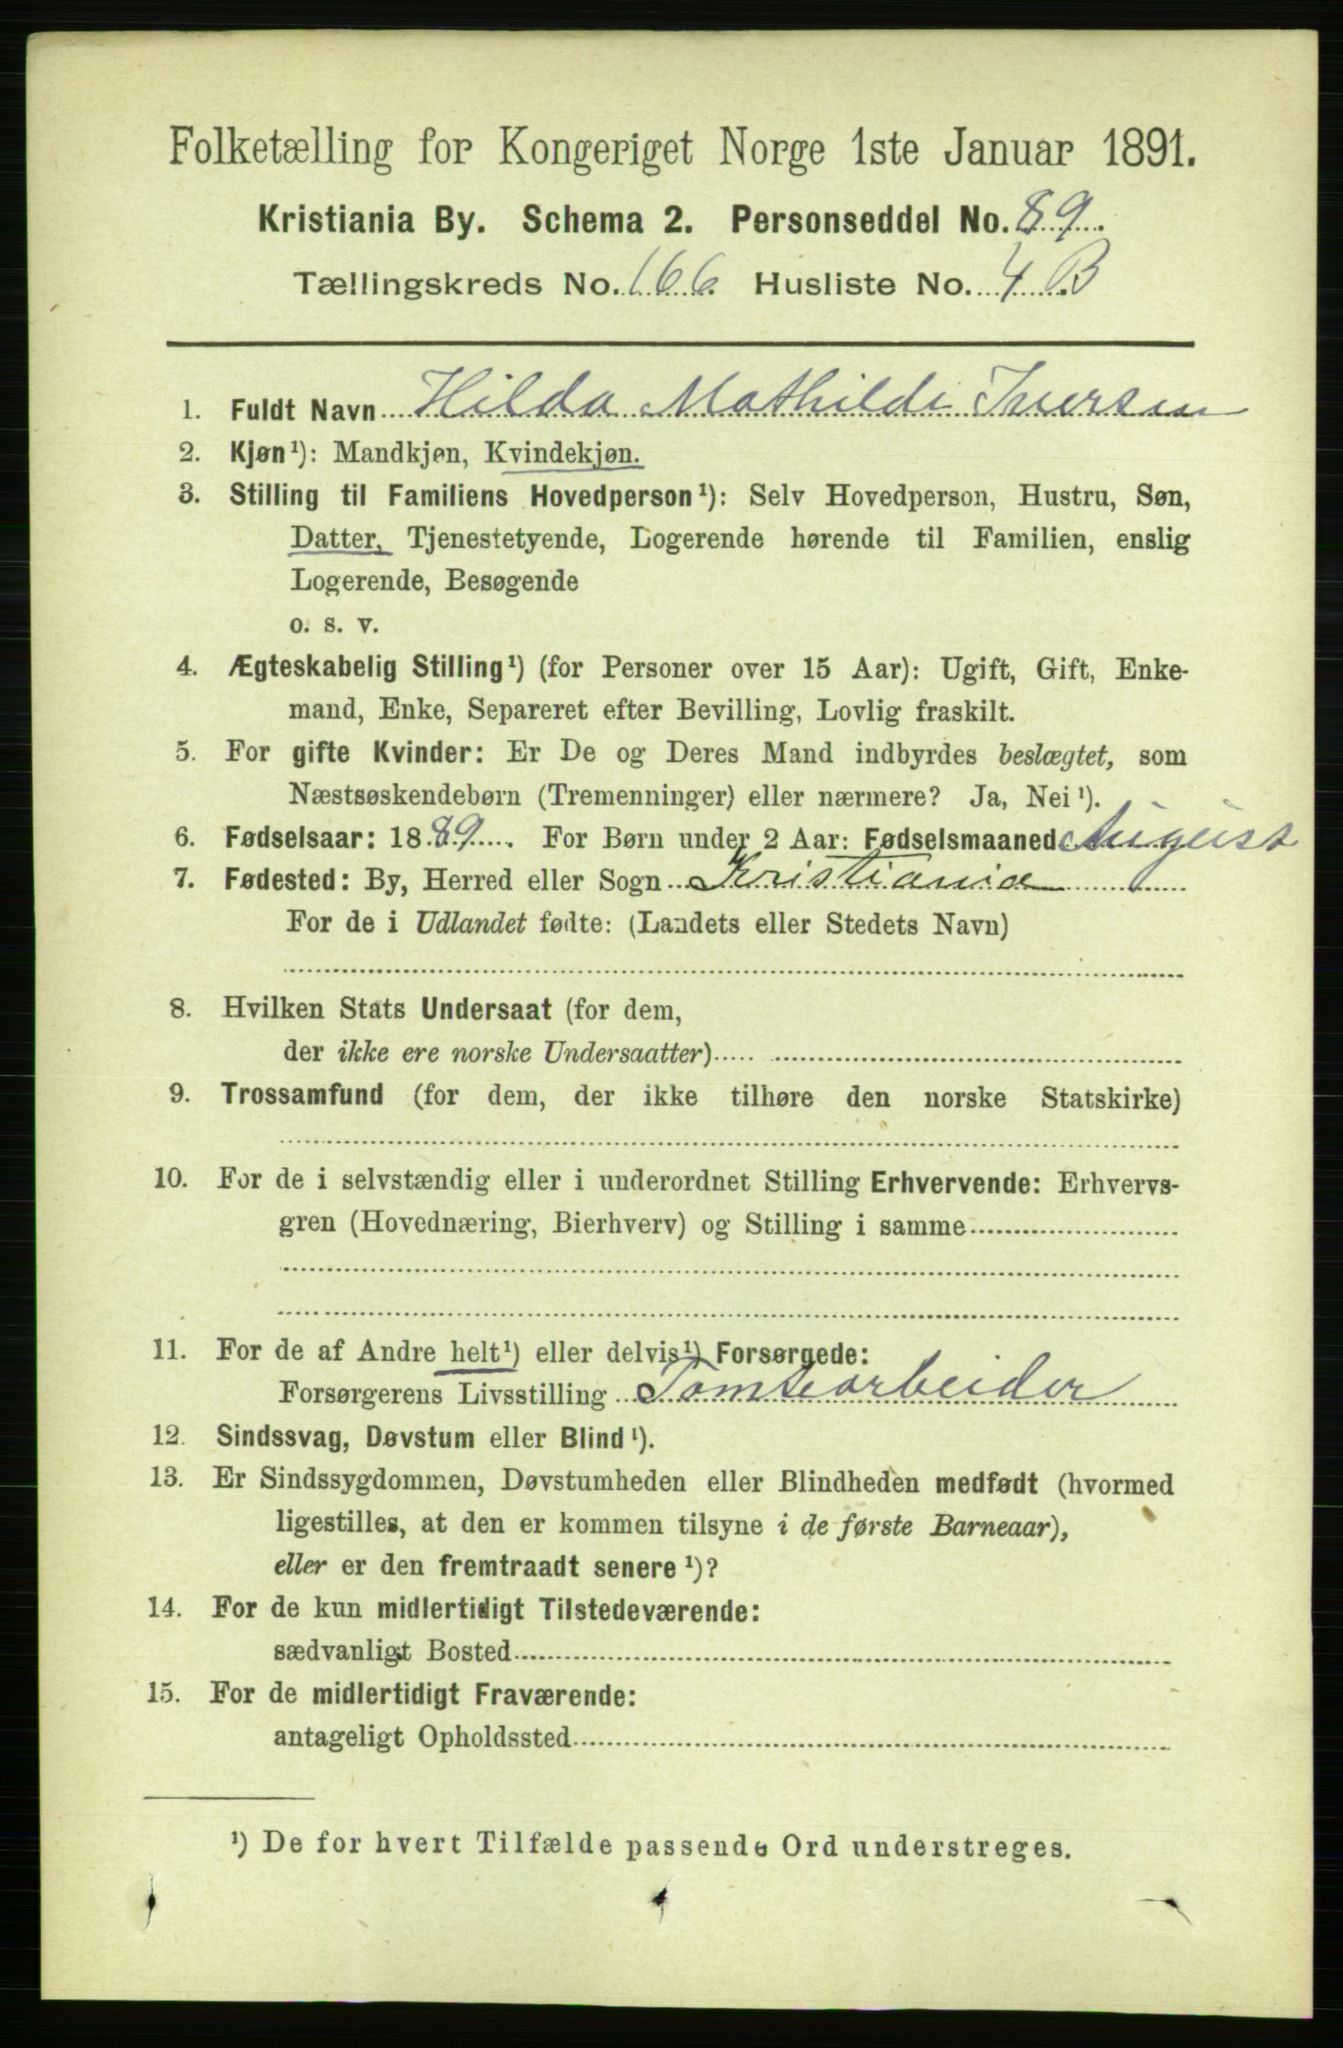 Folketælling for Kongeriget Norge 1ste Januar 1891.
Kristiania By. Schema 2. Personseddel No. 89.
Tællingskreds No. 166 Husliste No. 4 B
1. Fuldt Navn Hilda Mathilde Iversen
2. Kjøn¹): Mandkjøn, Kvindekjøn.
3. Stilling til Familiens Hovedperson¹): Selv Hovedperson, Hustru, Søn,
Datter, Tjenestetyende, Logerende hørende til Familien, enslig
Logerende, Besøgende
o. s. v.
4. Ægteskabelig Stilling¹) (for Personer over 15 Aar): Ugift, Gift, Enke-
mand, Enke, Separeret efter Bevilling, Lovlig fraskilt.
5. For gifte Kvinder: Er De og Deres Mand indbyrdes beslægtet, som
Næstsøskendebørn (Tremenninger) eller nærmere? Ja, Nei¹).
6. Fødselsaar: 1889. For Børn under 2 Aar: Fødselsmaaned August
7. Fødested: By, Herred eller Sogn Kristiania
For de i Udlandet fødte: (Landets eller Stedets Navn)
8. Hvilken Stats Undersaat (for dem,
der ikke ere norske Undersaatter)
9. Trossamfund (for dem, der ikke tilhøre den norske Statskirke)
10. For de i selvstændig eller i underordnet Stilling Erhvervende: Erhvervs-
gren (Hovednæring, Bierhverv) og Stilling i samme
11. For de af Andre helt¹) eller delvis¹) Forsørgede:
Forsørgerens Livsstilling Tomtearbeider
12. Sindssvag, Døvstum eller Blind¹).
13. Er Sindssygdommen, Døvstumheden eller Blindheden medfødt (hvormed
ligestilles, at den er kommen tilsyne i de første Barneaar),
eller er den fremtraadt senere¹)?
14. For de kun midlertidigt Tilstedeværende:
sædvanligt Bosted
15. For de midlertidigt Fraværende:
antageligt Opholdssted
¹) De for hvert Tilfælde passende Ord understreges.